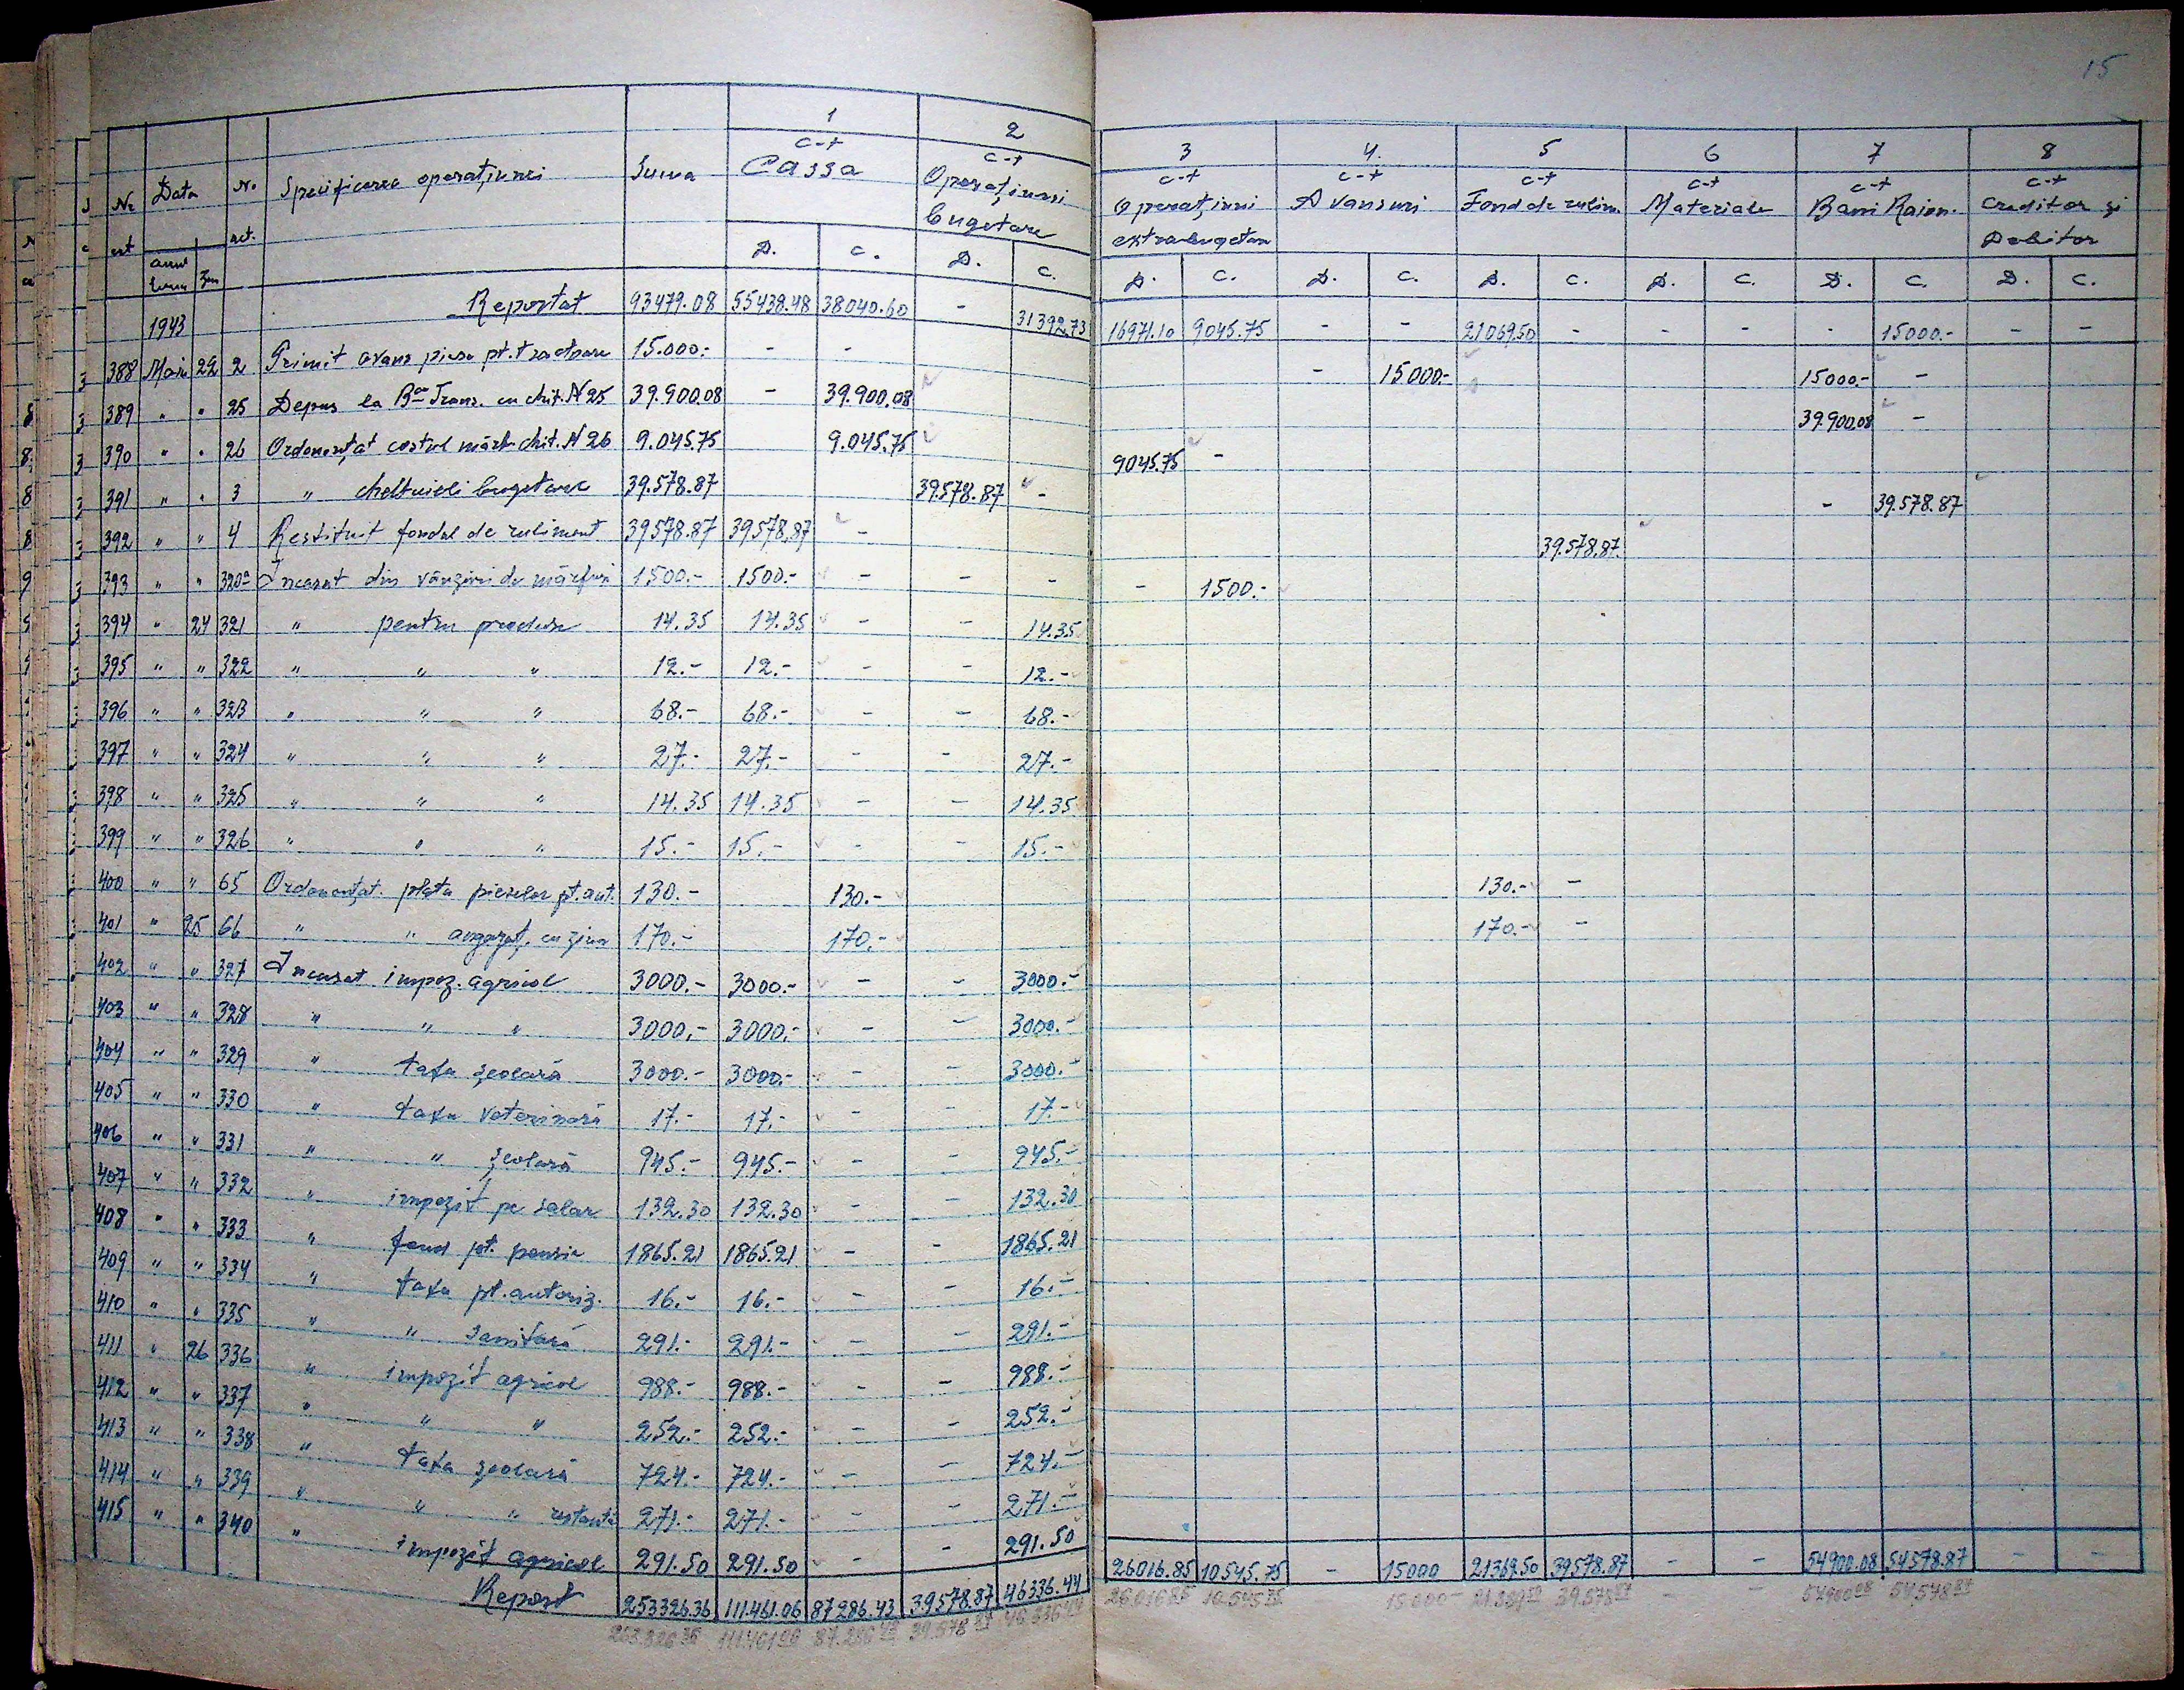 15
1 2 3 4. 5 6 7 8
Nr. crt Data No. act. Specificarea operațiunei Suma c-t Cassa c-t Operațiuni bugetare c-t Operațiuni extrabugetare c-t Avansuri c-t Fond de rulm. c-t Materiale c-t Bani Raion. c-t Creditor și Debitor
D. C. D. C. D. C. D. C. D. C. D. C. D. C. D. C.
1943 Reportat 93479.08 55438.48 38040.60 - 31392.73 16971.10 9045.75 - - 21069.50 - - - - 15000.- - -
388 Mai 22 2 Primit avans piese pt. tractoare 15.000.- - - - 15000.- 15000.- -
389 " " 25 Depus la Ba Trans. cu chit. N 25 39.900.08 - 39.900.08 39.900.08 -
390 " " 26 Ordonanțat costul mărf. chit. N 26 9.045.75 9.045.75 9045.75 -
391 " " 3 " cheltuieli bugetare 39.578.87 39.578.87 - - 39.578.87
392 " " 4 Restituit fondul de ruliment 39578.87 39578.87 - 39.578.87.
393 " " 320a Incasat din vânzări de mărfuri 1500.- 1500.- - - - - 1500.-
394 " 24 321 " pentru produse 14.35 14.35 - - 14.35
395 " " 322 " " " 12.- 12.- - - 12.-
396 " " 323 " " " 68.- 68.- - - 68.-
397 " " 324 " " " 27.- 27.- - - 27.-
398 " " 325 " " " 14.35 14.35 - - 14.35
399 " " 326 " " " 15.- 15.- - - 15.-
400 " " 65 Ordonanțat plata pieselor pt. aut. 130.- 130.- 130.- -
401 " 25 66 " " angajaț. cu ziua 170.- 170.- 170.- -
402 " " 327 Incasat impoz. agricol 3000.- 3000.- - - 3000.-
403 " " 328 " " " 3000.- 3000.- - - 3000.-
404 " " 329 " taxa școlară 3000.- 3000.- - - 3000.-
405 " " 330 " taxa veterinară 17.- 17.- - - 17.-
406 " " 331 " " școlară 945.- 945.- - - 945.-
407 " " 332 " impozit pe salar 132.30 132.30 - - 132.30
408 " " 333 " fond pt. pensie 1865.21 1865.21 - - 1865.21
409 " " 334 " taxa pt. autoriz. 16.- 16.- - - 16.-
410 " " 335 " " sanitară 291.- 291.- - - 291.-
411 " 26 336 " impozit agricol 988.- 988.- - - 988.-
412 " " 337 " " " 252.- 252.- - - 252.-
413 " " 338 " taxa școlară 724.- 724.- - - 724.-
414 " " 339 " " " restantă 271.- 271.- - - 271.-
415 " " 340 " impozit agricol 291.50 291.50 - - 291.50
Report 253326.36 111.461.06 87286.43 39578.87 46336.44 26016.85 10545.75 - 15000 21369.50 39578.87 - - 54900.08 54578.87 - -
111.461 06 87.286 43 39.578 87 46.336 44 26.016 85 10.545 75 15.000 - 21.369 50 39.578 87 - - 54900 08 54,578 87